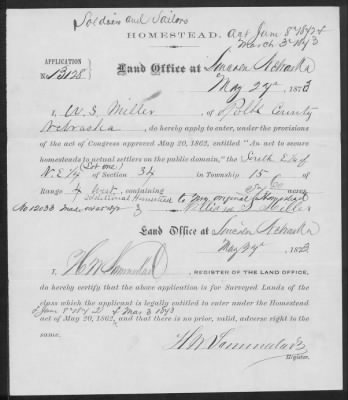 Soldiers and Sailors
HOMESTEAD. Act June 8th 1872 &
March 3d 1873
APPLICATION
No. 13128
Land Office at Lincoln Nebraska
May 27th 1873
I, W. S. Miller, of Polk County
Nebraska, do hereby apply to enter, under the provisions
of the act of Congress approved May 20, 1862, entitled "An act to secure
homesteads to actual settlers on the public domain," the South E 1/2 of
N. E 1/4 (Lot one) of Section 34 in Township 15 of
Range 4 West, containing acres
additional Homestead to my original Homestead
No 12033 made 3 William S. Miller
Land Office at Lincoln Nebraska
May 27th 1873
I, REGISTER OF THE LAND OFFICE,
do hereby certify that the above application is for Surveyed Lands of the
class which the applicant is legally entitled to enter under the Homestead
of June 8th 1872 & Mar 3 1873
act of May 20, 1862, and that there is no prior, valid, adverse right to the
same.
Register.